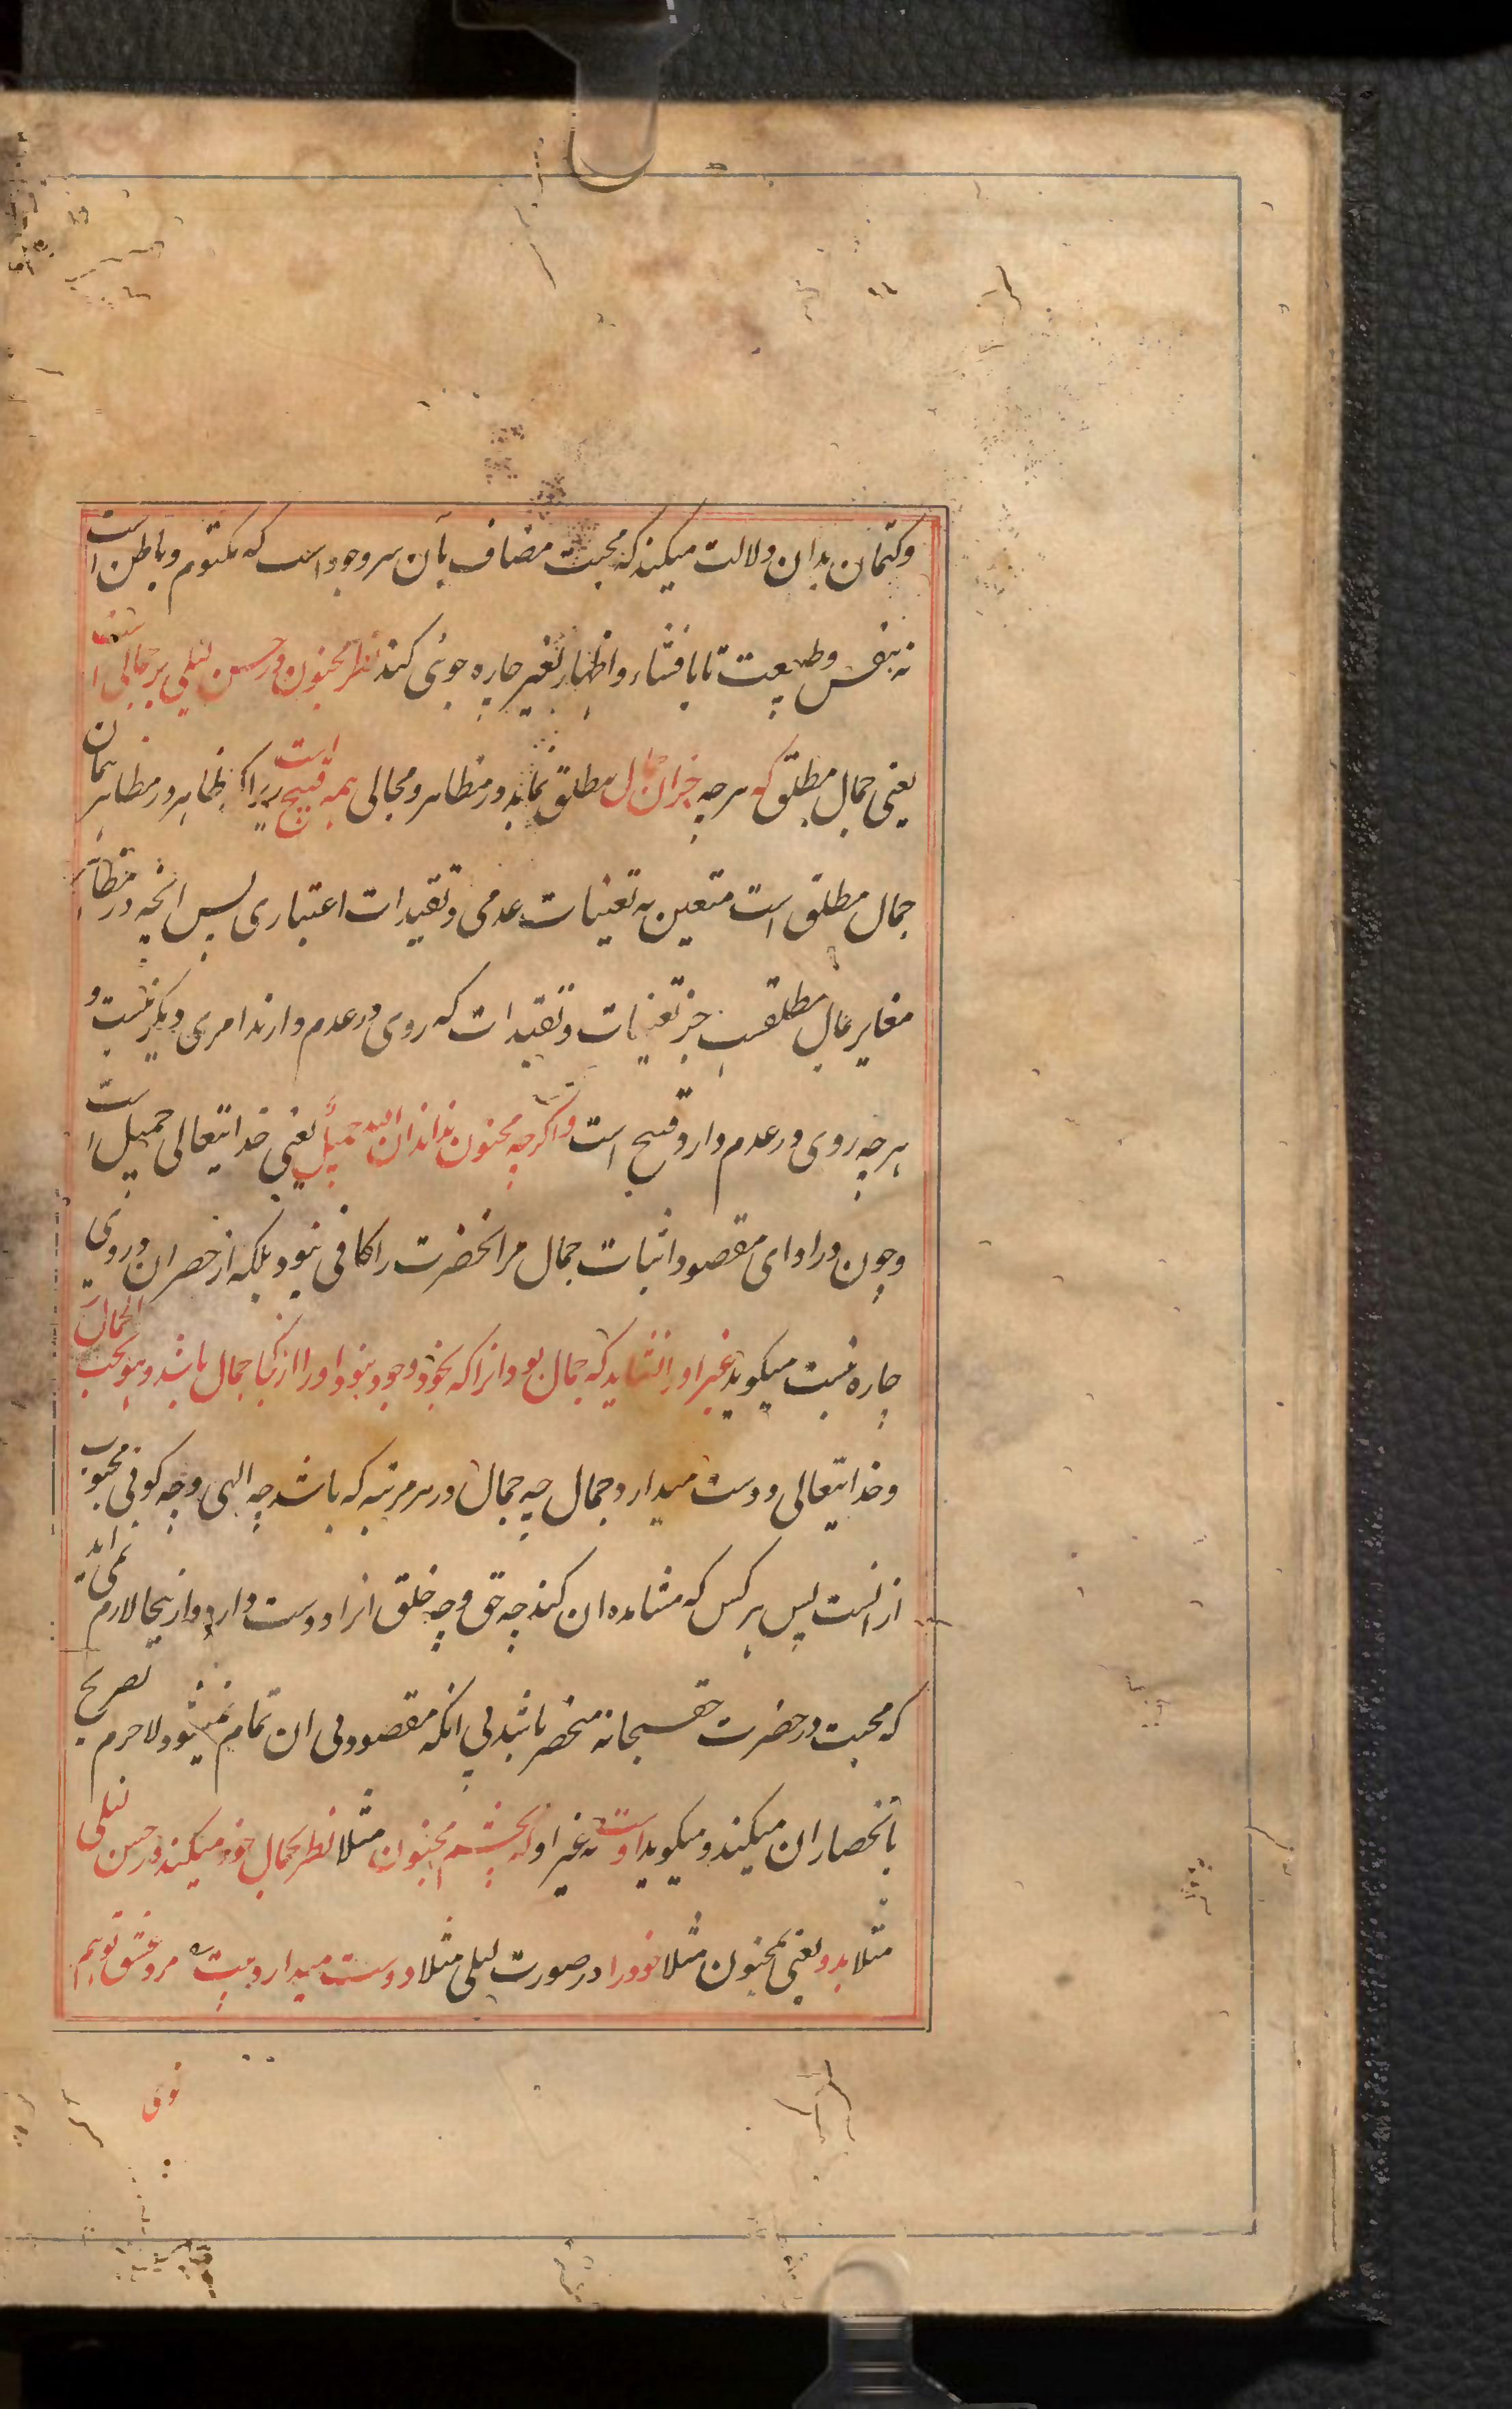 وکتمان بدان دلالت میکند که محبت مضاف بآن سر وجود است که مکتوم و باطن است
نه بنفس و طبیعت تا بافشاء و اظهار بغیر چاره جوئی کند نظر مجنون در حسن لیلی بر جمالی است
یعنی جمال مطلق که هرچه جز ان جمال مطلق نماید در مظاهر و مجالی همه قبیح است زیراکه ظاهر در مظاهر همان
جمال مطلق است متعین به تعینات عدمی و تقیدات اعتباری پس انچه در مظاهر
مغایر جمال مطلقست جز تعینات و تقیدات که روی در عدم دارند امری دیگر نیست و
هرچه روی در عدم دارد قبیح است واگرچه مجنون نداند ان الله جمیل یعنی خدایتعالی جمیل است
وچون در ادای مقصود اثبات جمال مر انحضرت را کافی نبود بلکه از حصر ان در وی
چاره نیست میکوید غیر او را نشاید که جمال بود انرا که بخود وجود نبود اورا از کجا جمال باشد و هو یحب الجمال
وخدایتعالی دوست میدارد جمال چه جمال در هر مرتبه که باشد چه الهی وچه کونی محبوب
از انست پس هر کس که مشاهده ان کند چه حق وچه خلق انرا دوست دارد و ازینجا لازم نمی اید
که محبت در حضرت حق سبحانه منحصر باشد بی انکه مقصود بی ان تمام نمیشود لاجرم تصریح
بانحصار ان میکند و میکوید اوست نه غیر او که بچشم مجنون مثلا نظر بجمال خود میکند در حسن لیلی
مثلا بدو یعنی بمجنون مثلا خود را در صورت لیلی مثلا دوست میدارد بیت مرد عشق تو هم
توی